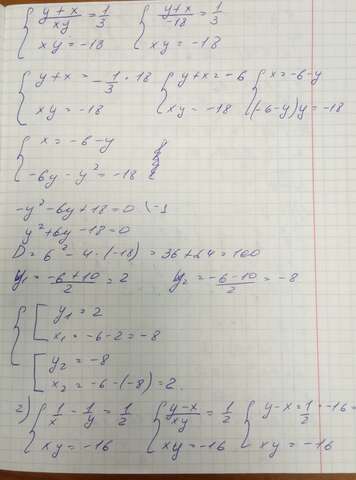 { (y+x)/(xy) = 1/3   { (y+x)/(-18) = 1/3
{ xy = -18   { xy = -18
{ y+x = -1/3 · 18   { y+x = -6   { x = -6-y
{ xy = -18   { xy = -18   { (-6-y)y = -18
{ x = -6-y
{ -6y - y² = -18
-y² - 6y + 18 = 0 \ -1
y² + 6y - 18 = 0
D = 6² - 4 · (-18) = 36 + 64 = 100
y₁ = (-6+10)/2 = 2   y₂ = (-6-10)/2 = -8
{ [ y₁ = 2
[ x₁ = -6-2 = -8
[ y₂ = -8
[ x₂ = -6-(-8) = 2.
2) { 1/x - 1/y = 1/2   { (y-x)/(xy) = 1/2   { y-x = 1/2 · -16 =
{ xy = -16   { xy = -16   { xy = -16